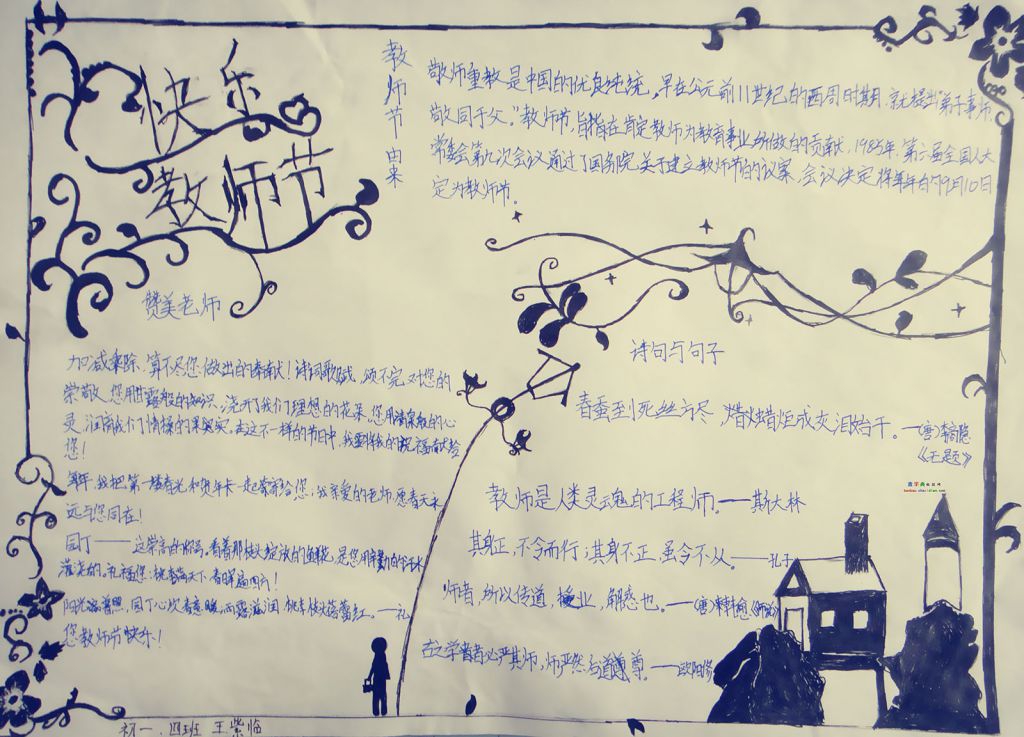 快乐
教师节
教师节由来
敬师重教是中国的优良传统，早在公元前11世纪的西周时期，就提出"弟子事师，
敬同于父。"教师节，旨指在肯定教师为教育事业所做的贡献，1985年，第六届全国人大
常委会第九次会议通过了国务院关于建立教师节的议案，会议决定将每年的9月10日
定为教师节。
赞美老师
加减乘除，算不尽您做出的奉献！诗词歌赋，颂不完对您的
崇敬。您用甘露般的知识，浇开了我们理想的花朵，您用清泉般的心
灵，润育我们情操的果实。在这不一样的节日中，我要将我的祝福献给
您！
每年，我把第一缕春光和贺年卡一起寄给您；我亲爱的老师，愿春天永
远与您同在！
园丁——这崇高的称号。看着那枝头绽放的鲜花，是您用辛勤的汗水
灌浇的。祝福您：桃李满天下，春晖遍四方！
阳光普照，园丁心坎春意暖，雨露滋润，桃李枝头蓓蕾红。——礼
您教师节快乐！
诗句与句子
春蚕到死丝方尽，蜡炬成灰泪始干。——(唐)李商隐
《无题》
教师是人类灵魂的工程师。——斯大林
其身正，不令而行；其身不正，虽令不从。——孔子
师者，所以传道，授业，解惑也。——(唐)韩愈《师说》
古之学者必严其师，师严然后道尊。——欧阳修
初一．四班 王紫临